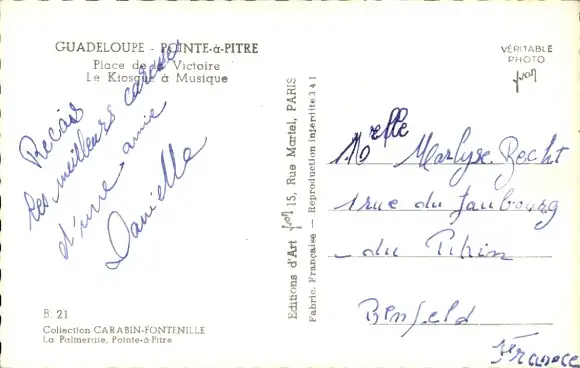 GUADELOUPE - POINTE-à-PITRE
Place de la Victoire
Le Kiosque à Musique
VÉRITABLE
PHOTO
yvon
Recois
les meilleurs
d'une amie
Danielle
Editions d'Art yvon 15, Rue Martel, PARIS
Fabric. Française - Reproduction interdite 341
Melle Marlyse Becht
1 rue du Faubourg
du Rhin
Benfeld
France
B. 21
Collection CARABIN-FONTENILLE
La Palmeraie, Pointe-à-Pitre